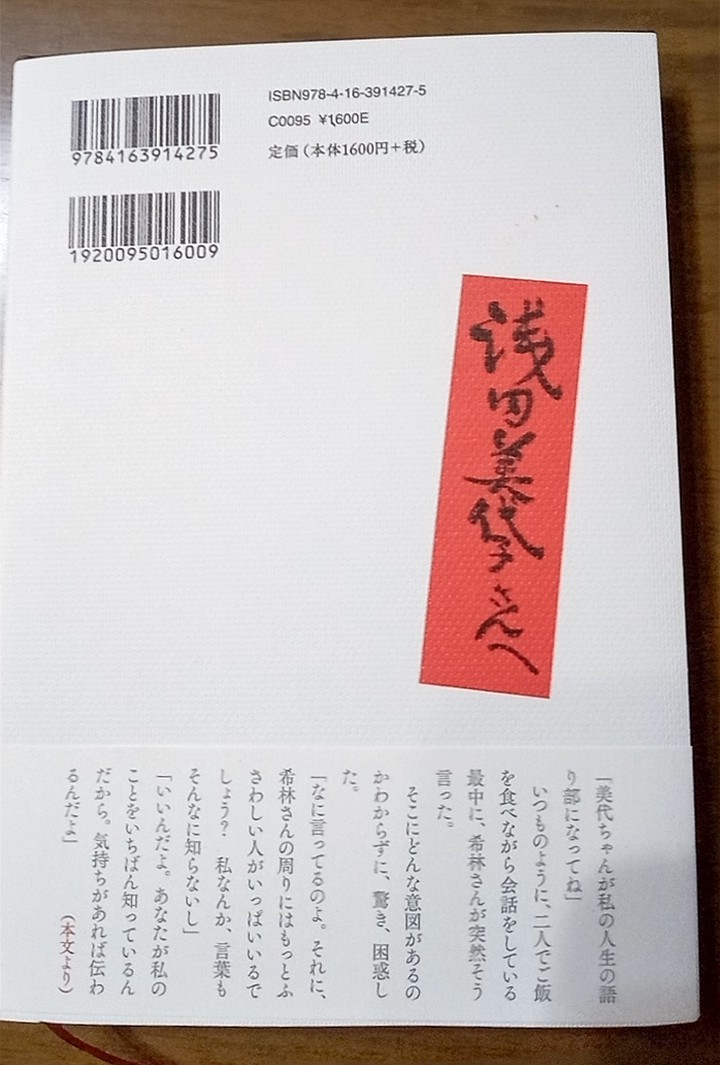 ISBN978-4-16-391427-5
C0095 ¥1600E
定価（本体1600円＋税）
9784163914275
1920095016009
浅田美代子さんへ
「美代ちゃんが私の人生の語
り部になってね」
いつものように、二人でご飯
を食べながら会話をしている
最中に、希林さんが突然そう
言った。
そこにどんな意図があるの
かわからずに、驚き、困惑し
た。
「なに言ってるのよ。それに、
希林さんの周りにはもっとふ
さわしい人がいっぱいいるで
しょう？　私なんか、言葉も
そんなに知らないし」
「いいんだよ。あなたが私の
ことをいちばん知っているん
だから。気持ちがあれば伝わ
るんだよ」
（本文より）